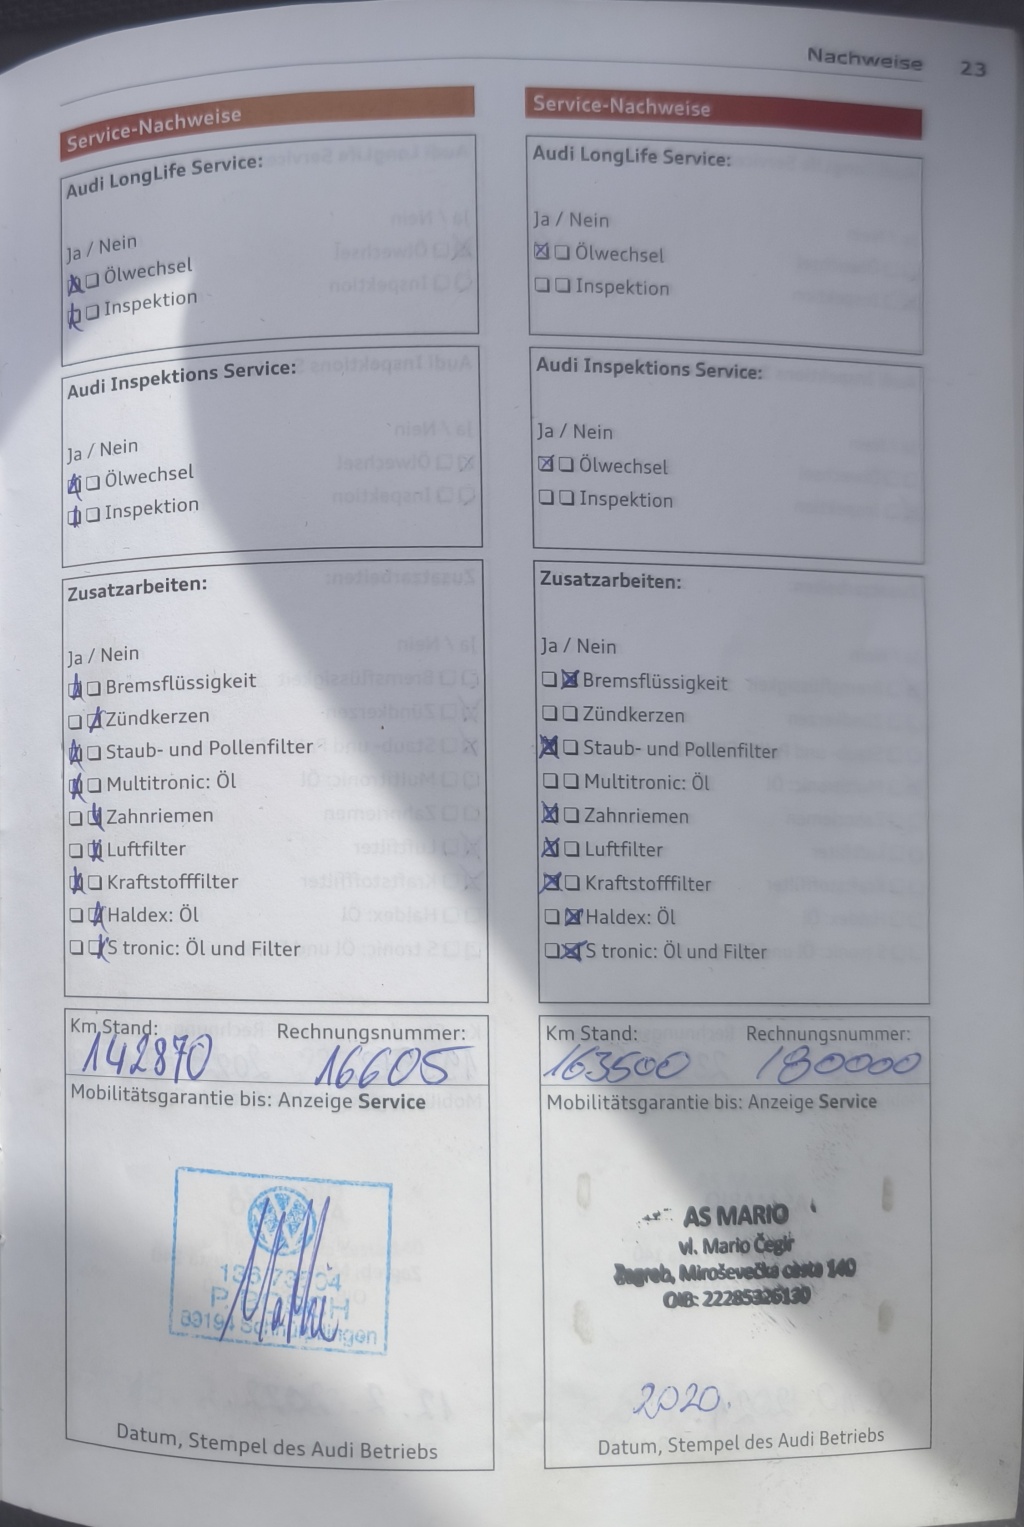 Nachweise 23
Service-Nachweise
Audi LongLife Service:
Ja / Nein
Ölwechsel
Inspektion
Audi Inspektions Service:
Ja / Nein
Ölwechsel
Inspektion
Zusatzarbeiten:
Ja / Nein
Bremsflüssigkeit
Zündkerzen
Staub- und Pollenfilter
Multitronic: Öl
Zahnriemen
Luftfilter
Kraftstofffilter
Haldex: Öl
S tronic: Öl und Filter
Km Stand: Rechnungsnummer:
142870 16605
Mobilitätsgarantie bis: Anzeige Service
Datum, Stempel des Audi Betriebs
Service-Nachweise
Audi LongLife Service:
Ja / Nein
Ölwechsel
Inspektion
Audi Inspektions Service:
Ja / Nein
Ölwechsel
Inspektion
Zusatzarbeiten:
Ja / Nein
Bremsflüssigkeit
Zündkerzen
Staub- und Pollenfilter
Multitronic: Öl
Zahnriemen
Luftfilter
Kraftstofffilter
Haldex: Öl
S tronic: Öl und Filter
Km Stand: Rechnungsnummer:
163500 180000
Mobilitätsgarantie bis: Anzeige Service
AS MARIO
vl. Mario Čegir
Zagreb, Miroševečka cesta 140
OIB: 22285326130
2020.
Datum, Stempel des Audi Betriebs